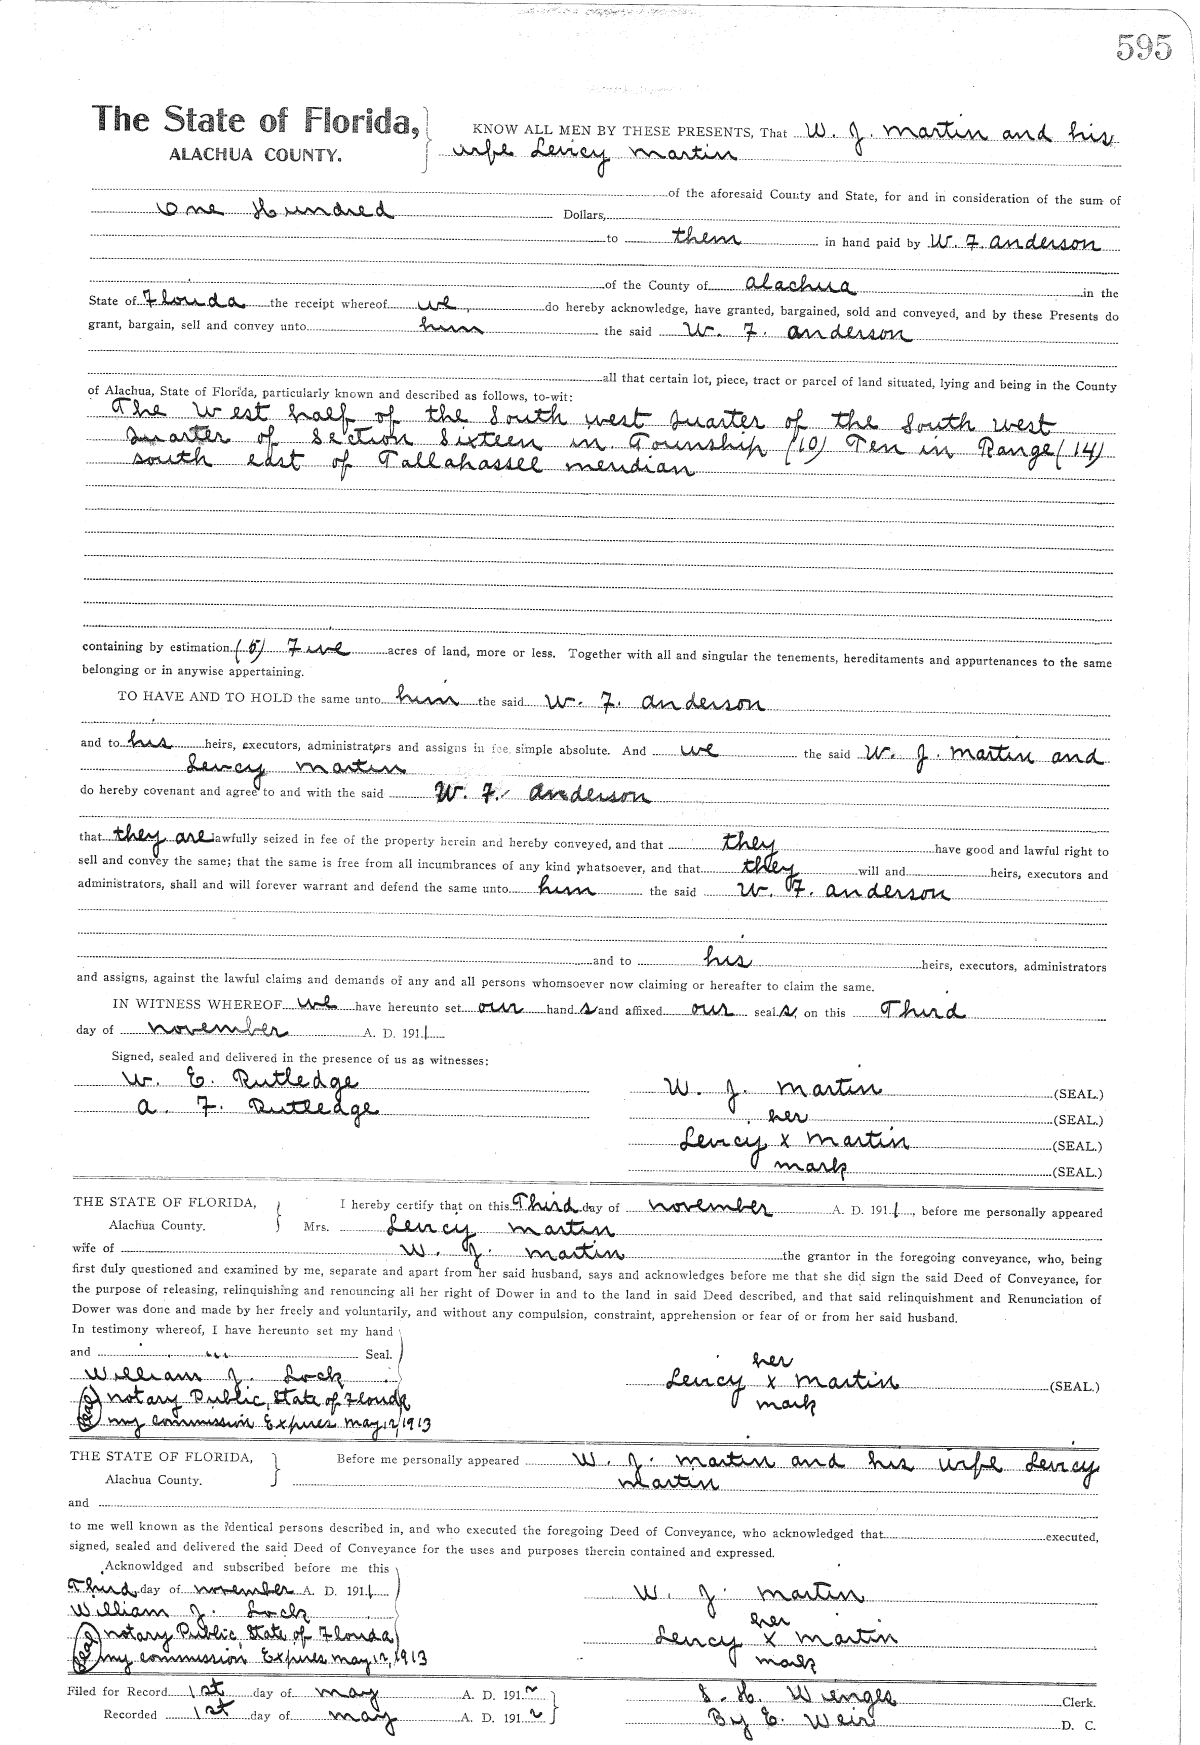 595
The State of Florida,
ALACHUA COUNTY.
KNOW ALL MEN BY THESE PRESENTS, That W. J. Martin and his
wife Levicy Martin
of the aforesaid County and State, for and in consideration of the sum of
One Hundred Dollars,
to them in hand paid by W. F. Anderson
of the County of Alachua in the
State of Florida the receipt whereof we do hereby acknowledge, have granted, bargained, sold and conveyed, and by these Presents do
grant, bargain, sell and convey unto him the said W. F. Anderson
all that certain lot, piece, tract or parcel of land situated, lying and being in the County
of Alachua, State of Florida, particularly known and described as follows, to-wit:
The West half of the South west quarter of the South west
quarter of Section Sixteen in Township (10) Ten in Range (14)
south east of Tallahassee meridian
containing by estimation (5) Five acres of land, more or less. Together with all and singular the tenements, hereditaments and appurtenances to the same
belonging or in anywise appertaining.
TO HAVE AND TO HOLD the same unto him the said W. F. Anderson
and to his heirs, executors, administrators and assigns in fee simple absolute. And we the said W. J. Martin and
Levicy Martin
do hereby covenant and agree to and with the said W. F. Anderson
that they are lawfully seized in fee of the property herein and hereby conveyed, and that they have good and lawful right to
sell and convey the same; that the same is free from all incumbrances of any kind whatsoever, and that they will and heirs, executors and
administrators, shall and will forever warrant and defend the same unto him the said W. F. Anderson
and to his heirs, executors, administrators
and assigns, against the lawful claims and demands of any and all persons whomsoever now claiming or hereafter to claim the same.
IN WITNESS WHEREOF we have hereunto set our hands and affixed our seals, on this Third
day of November A. D. 1911
Signed, sealed and delivered in the presence of us as witnesses:
W. E. Rutledge
A. F. Rutledge
W. J. Martin (SEAL.)
her (SEAL.)
Levicy x Martin (SEAL.)
mark (SEAL.)
THE STATE OF FLORIDA,
Alachua County.
I hereby certify that on this Third day of November A. D. 1911, before me personally appeared
Mrs. Levicy Martin
wife of W. J. Martin the grantor in the foregoing conveyance, who, being
first duly questioned and examined by me, separate and apart from her said husband, says and acknowledges before me that she did sign the said Deed of Conveyance, for
the purpose of releasing, relinquishing and renouncing all her right of Dower in and to the land in said Deed described, and that said relinquishment and Renunciation of
Dower was done and made by her freely and voluntarily, and without any compulsion, constraint, apprehension or fear of or from her said husband.
In testimony whereof, I have hereunto set my hand
and Seal.
William J. Lock
Notary Public, State of Florida
My commission Expires May 12, 1913
her
Levicy x Martin (SEAL.)
mark
THE STATE OF FLORIDA,
Alachua County.
Before me personally appeared W. J. Martin and his wife Levicy
Martin
and
to me well known as the identical persons described in, and who executed the foregoing Deed of Conveyance, who acknowledged that executed,
signed, sealed and delivered the said Deed of Conveyance for the uses and purposes therein contained and expressed.
Acknowldged and subscribed before me this
Third day of November A. D. 1911
William J. Lock
Notary Public, State of Florida
My commission Expires May 12, 1913
W. J. Martin
her
Levicy x Martin
mark
Filed for Record 1st day of May A. D. 1912
Recorded 1st day of May A. D. 1912
S. H. Wienges Clerk.
By E. Weir D. C.